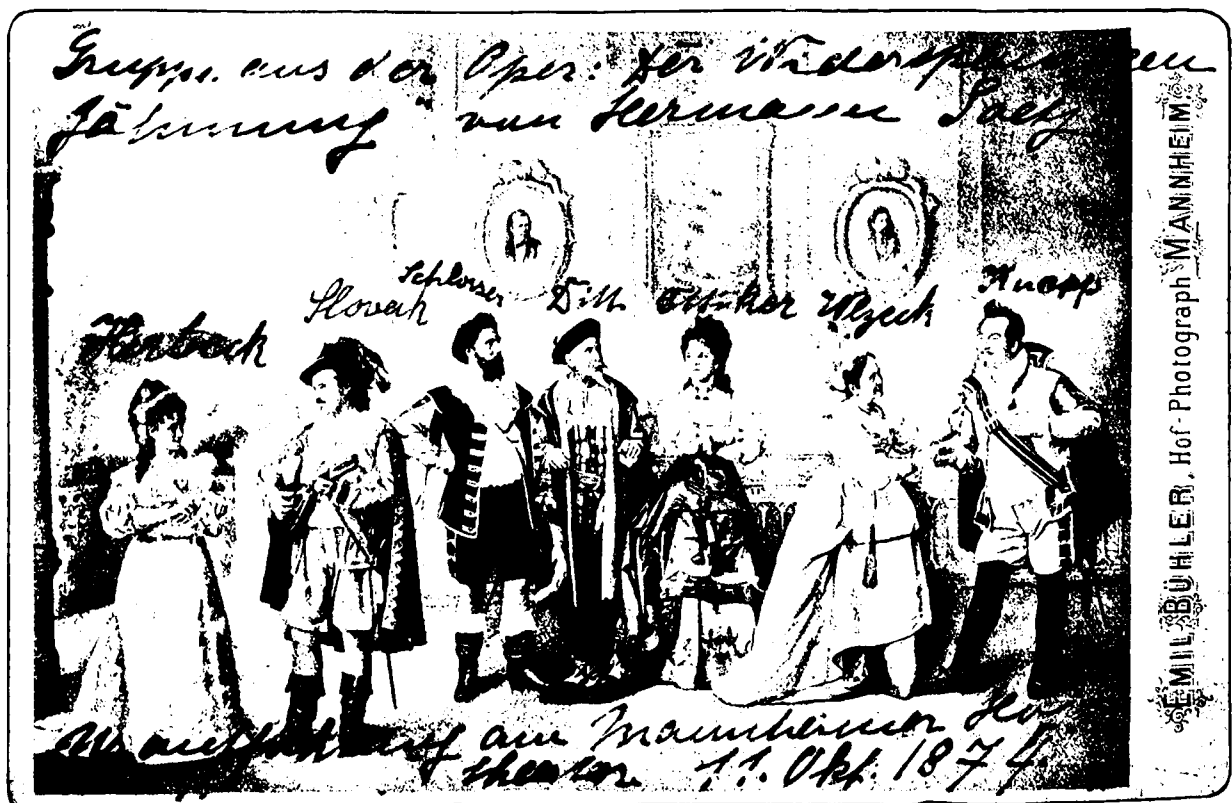 Gruppe aus der Oper: Der Widerspenstigen
Zähmung von Hermann Goetz
Slovak Schlosser Ditt Ottiker Wlzeck Knapp
Uraufführung am Mannheimer Hof
theater 11. Okt. 1874.
EMIL BÜHLER, Hof-Photograph MANNHEIM